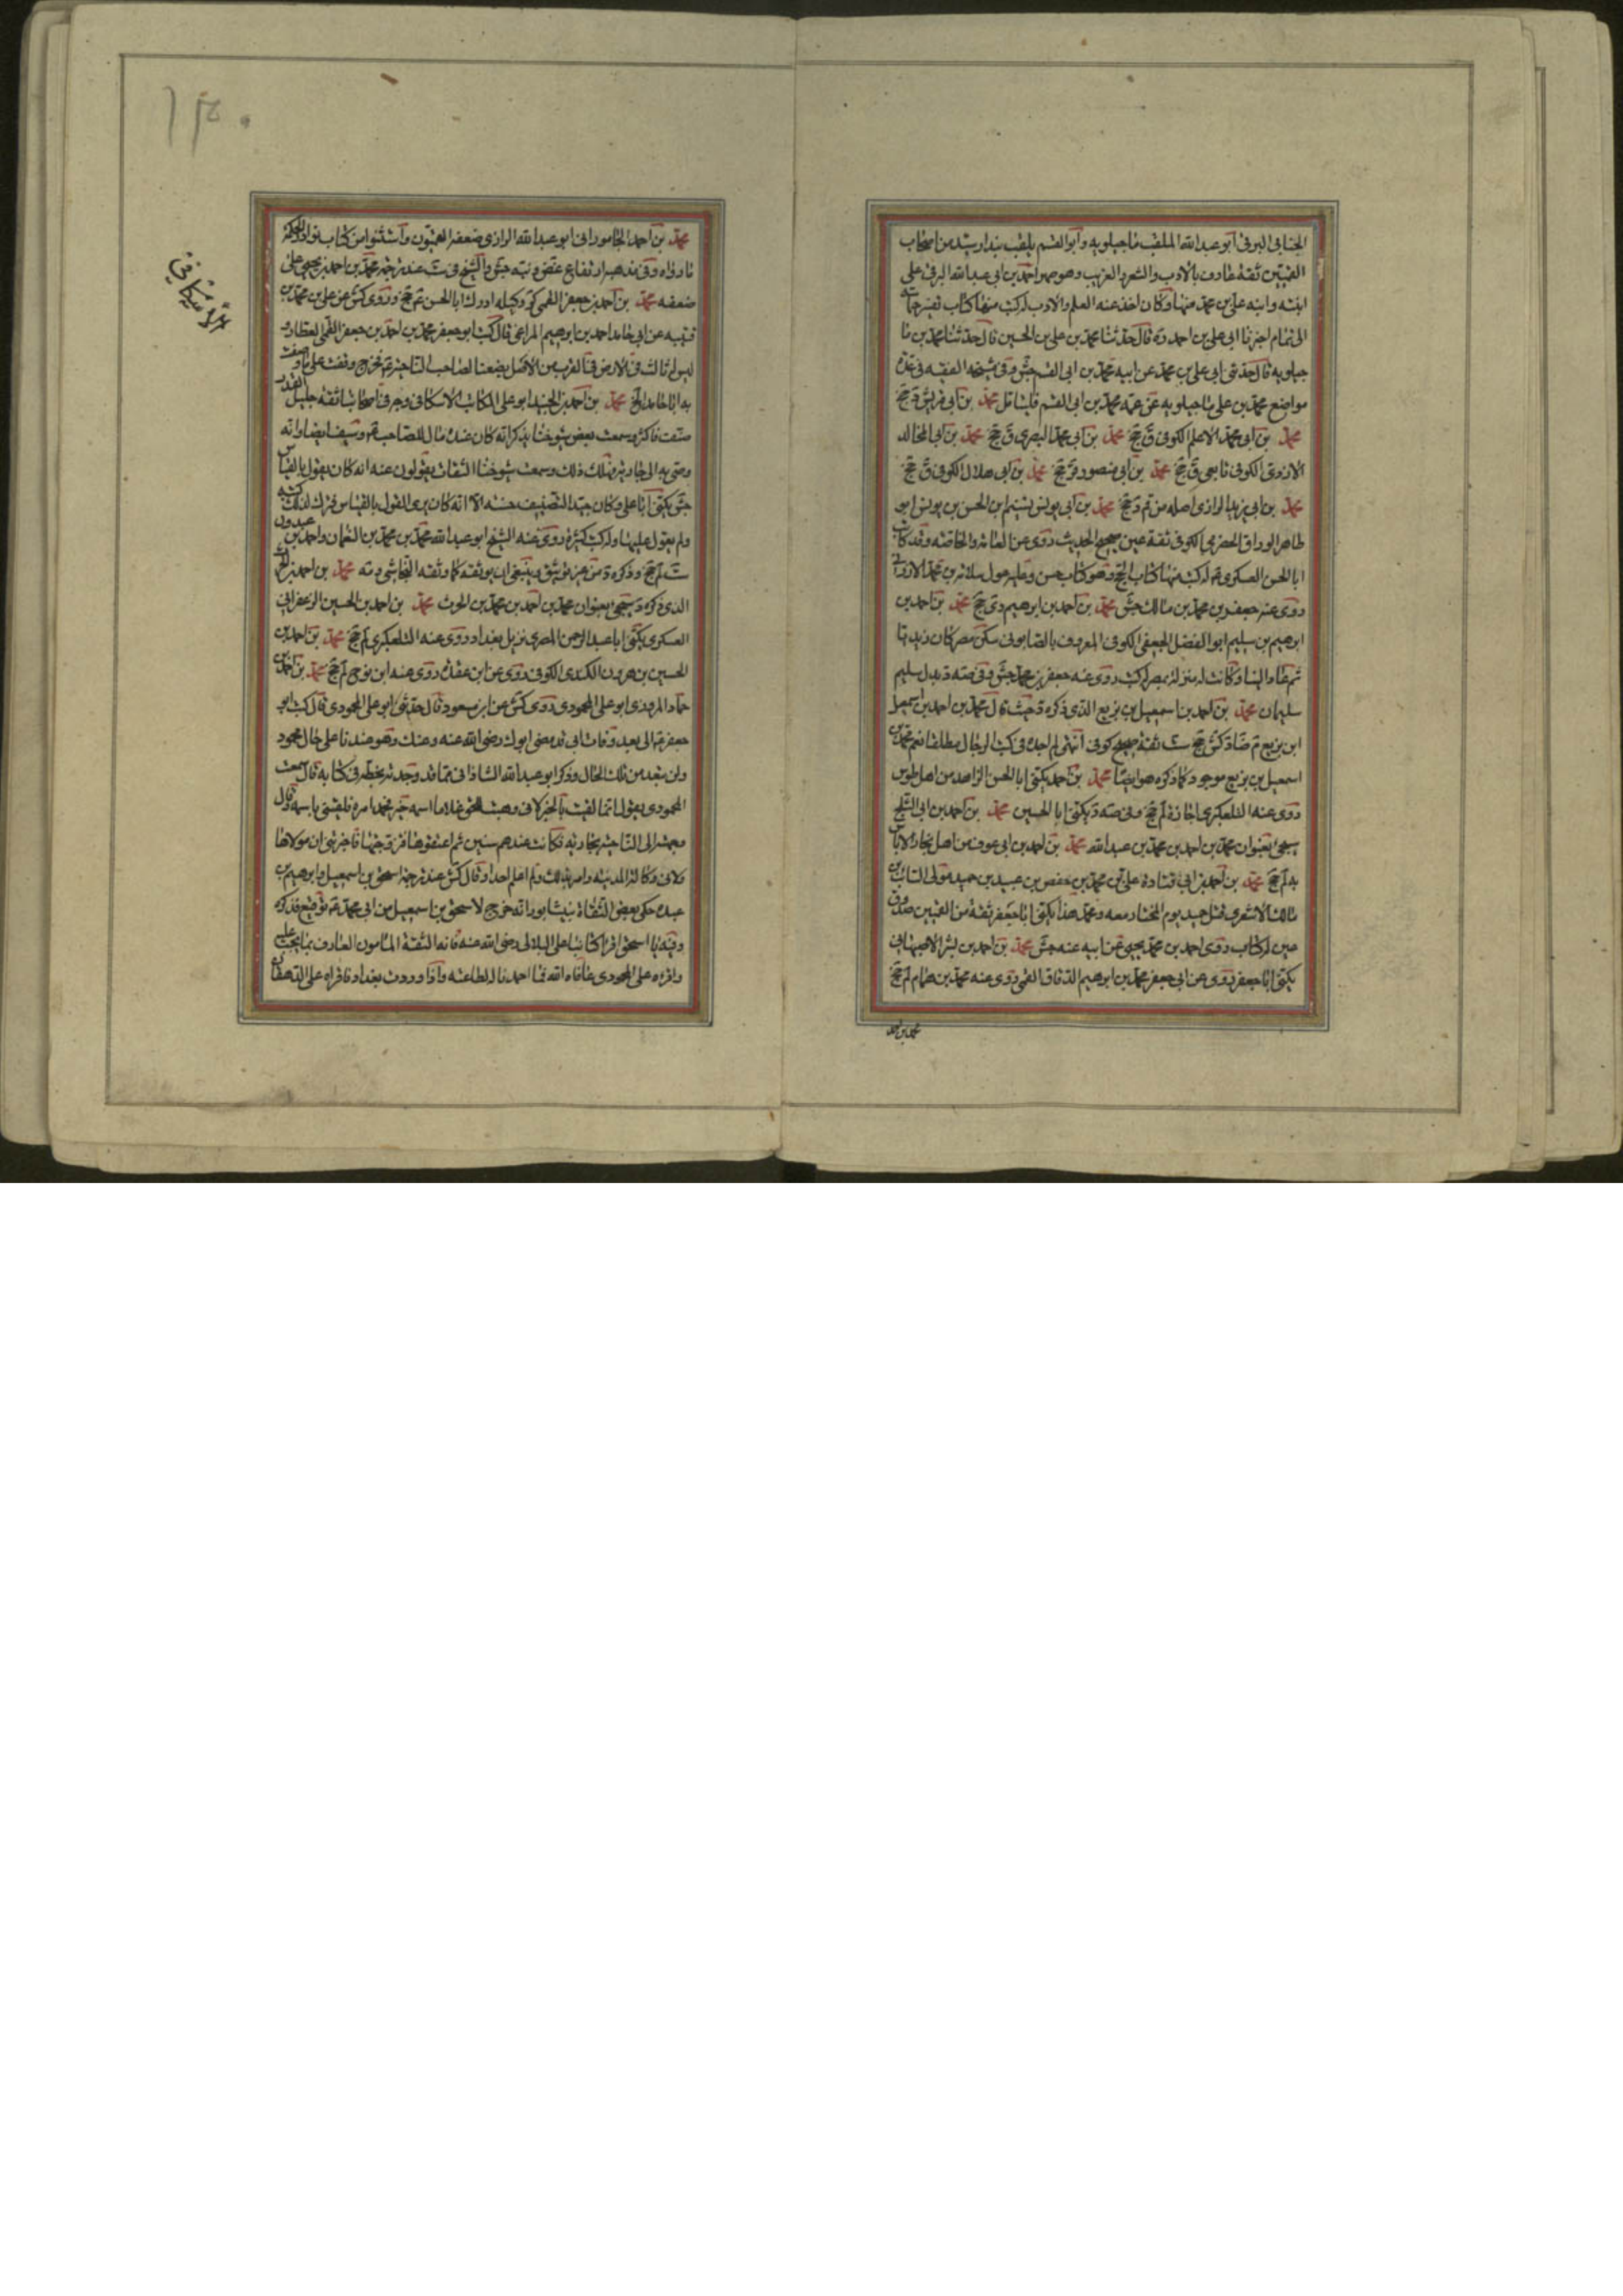 الجنابي البرقي ابو عبد الله الملقب ماجيلويه وابو القسم يلقب بندار سيد من اصحاب
القميين ثقة عارف بالادب والشعر والغريب وهو صهر احمد بن ابي عبد الله البرقي على
ابنته وابنه علي بن محمد منها وكان اخذ عنه العلم والادب له كتب منها كتاب تفسير حماسة
ابي تمام اخبرنا ابي علي بن احمد ره قال حدثنا محمد بن علي بن الحسين قال حدثنا محمد بن ما
جيلويه قال حدثني ابي علي بن محمد عن ابيه محمد بن ابي القسم جش وفي مشيخة الفقيه في عدة
مواضع محمد بن علي ماجيلويه عن عمه محمد بن ابي القسم فليتامل محمد بن ابي
محمد بن ابي محمد الاعلم الكوفي ق جخ محمد بن ابي محمد البصري ق جخ محمد بن ابي المخالد
الازدي الكوفي تابعي ق جخ محمد بن ابي منصور ق جخ محمد بن ابي هلال الكوفي ق جخ
محمد بن ابي يزيد الرازي اصله من قم د جخ محمد بن ابي يونس تسنيم بن الحسن بن يونس ابو
طاهر الوراق الحضرمي الكوفي ثقة عين صحيح الحديث روى عن العامة والخاصة وقد كاتب
ابا الحسن العسكري ع له كتب منها كتاب الحج وهو كتاب حسن وعليه عول سلامة بن محمد الارزني
روى عنه جعفر بن محمد بن مالك جش محمد بن احمد بن ابراهيم دي جخ محمد بن احمد بن
ابرهيم بن سليم ابو الفضل الجعفي الكوفي المعروف بالصابوني سكن مصر كان زيديا
ثم عاد الينا وكانت له منزلة بمصر له كتب روى عنه جعفر بن محمد جش وفي صه د بدل سليم
سليمان محمد بن احمد بن اسمعيل بن بزيع الذي ذكره د حيث قال محمد بن احمد بن اسمعيل
ابن بزيع م ضا د كش جخ ست ثقة صحيح كوفي انتهى لم اجده في كتب الرجال مطلقا نعم محمد بن
اسمعيل بن بزيع موجود كما ذكره هو ايضا محمد بن احمد يكنى ابا الحسن الزاهد من اهل طوس
روى عنه التلعكبري اجازة لم جخ وفي صه د يكنى ابا الحسين محمد بن احمد بن ابي الثلج
سيجئ بعنوان محمد بن احمد بن محمد بن عبد الله محمد بن احمد بن ابي عوف من اهل بخارا لا باس
به لم جخ محمد بن احمد بن ابي قتادة علي بن محمد بن حفص بن عبيد بن حميد مولى السائب بن
مالك الاشعري قتل حميد يوم المختار معه ومحمد هذا يكنى ابا جعفر ثقة من القميين صدوق
عين له كتاب روى احمد بن محمد بن يحيى عن ابيه عنه جش محمد بن احمد بن بشر الاصبهاني
يكنى ابا جعفر روى عن ابي جعفر محمد بن ابرهيم الدقاق القمي روى عنه محمد بن همام لم جخ
محمد بن احمد
١٣٠
الاسكافي
محمد بن احمد الجاموراني ابو عبد الله الرازي ضعفه القميون واستثنوا من كتاب نوادر الحكمة
ما رواه وفي مذهبه ارتفاع غض د نبه جش والشيخ في ست عند ترجمة محمد بن احمد بن يحيى على
ضعفه محمد بن احمد بن جعفر القمي كر وكيله ادرك ابا الحسن ع جخ وروى كش عن علي بن محمد بن
قتيبة عن ابي حامد احمد بن ابرهيم المراغي قال كتب ابو جعفر محمد بن احمد بن جعفر القمي العطار و
ليس له ثالث في الارض في القرب من الاصل يصفنا لصاحب الناحية ع فخرج وقفت على ما وصفت
به ابا حامد الخ محمد بن احمد بن الجنيد ابو علي الكاتب الاسكافي وجه في اصحابنا ثقة جليل القدر
صنف فاكثر وسمعت بعض شيوخنا يذكر انه كان عنده مال للصاحب ع وسيف ايضا وانه
وصى به الى جاريته فهلك ذلك وسمعت شيوخنا الثقات يقولون عنه انه كان يقول بالقياس
جش يكنى ابا علي وكان جيد التصنيف حسنه الا انه كان يرى القول بالقياس فترك لذلك كتبه
ولم يعول عليها وله كتب كثيرة روى عنه الشيخ ابو عبد الله محمد بن محمد بن النعمان واحمد بن عبدون
ست لم جخ وذكره د من غير توثيق وينبغي ان يوثقه كما وثقه النجاشي وصه محمد بن احمد بن الحرث
الذي ذكره د سيجئ بعنوان محمد بن احمد بن محمد بن الحرث محمد بن احمد بن الحسين الزعفراني
العسكري يكنى ابا عبد الرحمن المصري نزيل بغداد روى عنه التلعكبري لم جخ محمد بن احمد بن
الحسين بن هرون الكندي الكوفي روى عن ابن عقدة روى عنه ابن نوح لم جخ محمد بن احمد بن
حماد المروزي ابو علي المحمودي روى كش عن ابن مسعود قال حدثني ابو علي المحمودي قال كتب ابو
جعفر ع الي بعد وفات ابي قد مضى ابوك رضي الله عنه وعنك وهو عندنا على حال محمود
ولن تبعد من تلك الحال وذكر ابو عبد الله الشاذاني مما قد وجدته بخطه في كتابه قال سمعت
المحمودي يقول انما لقبت بالخير لاني وهبت للحق غلاما اسمه خير فحمد امره فلقبني باسمه وقال
وجهت الى الناحية بجارية فكانت عندهم سنين ثم اعتقوها فتزوجتها فاخبرتني ان مولاها
ولاني وكالة المدينة وامر بذلك ولم اعلم احدا وقال كش عند ترجمة اسحق بن اسمعيل وابرهيم بن
عبده حكى بعض الثقاة بنيشابور انه خرج لاسحق بن اسمعيل من ابي محمد ع توقيع فذكره
وفيه يا اسحق اقرأ كتابنا على البلالي رضي الله عنه فانه الثقة المامون العارف بما يجب عليه
واقرءه على المحمودي عافاه الله فما احمدنا لطاعته واذا وردت بغداد فاقراه على الدهقان